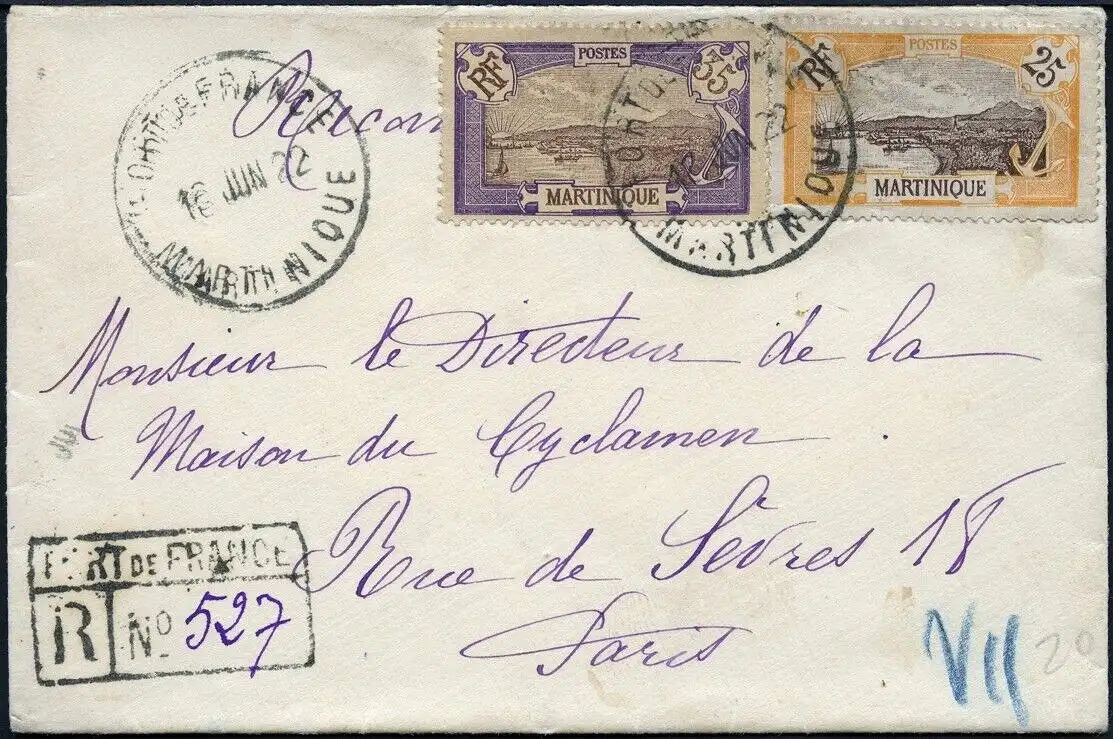 FORT DE FRANCE
16 JUN 22
MARTINIQUE
Recom
POSTES
RF 35
MARTINIQUE
POSTES
RF 25
MARTINIQUE
FORT DE
16 JUN 22
MARTINIQUE
Monsieur le Directeur de la
Maison du Cyclamen.
Rue de Sèvres 18
Paris
FORT DE FRANCE
R No 527
VII 20